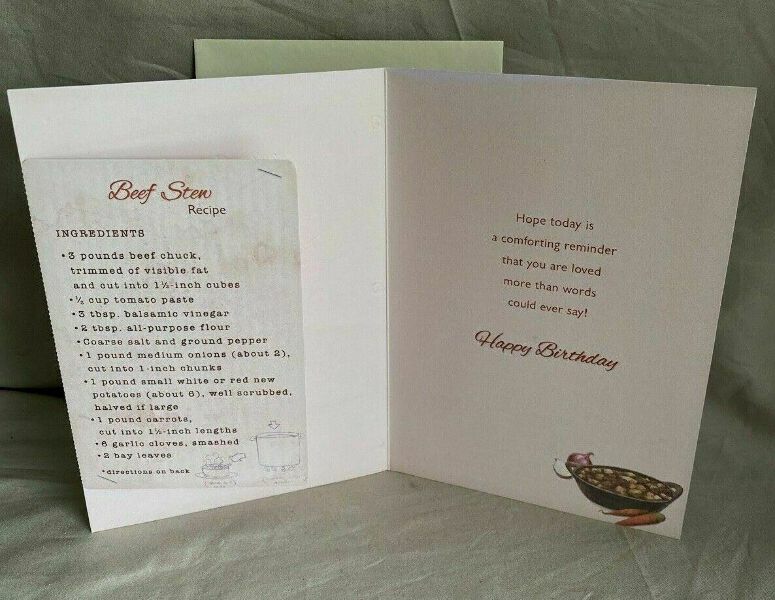 Beef Stew
Recipe
INGREDIENTS
•3 pounds beef chuck,
trimmed of visible fat
and cut into 1½-inch cubes
•⅓ cup tomato paste
•3 tbsp. balsamic vinegar
•2 tbsp. all-purpose flour
•Coarse salt and ground pepper
•1 pound medium onions (about 2),
cut into 1-inch chunks
•1 pound small white or red new
potatoes (about 6), well scrubbed,
halved if large
•1 pound carrots,
cut into 1½-inch lengths
•6 garlic cloves, smashed
•2 bay leaves
*directions on back
Hope today is
a comforting reminder
that you are loved
more than words
could ever say!
Happy Birthday